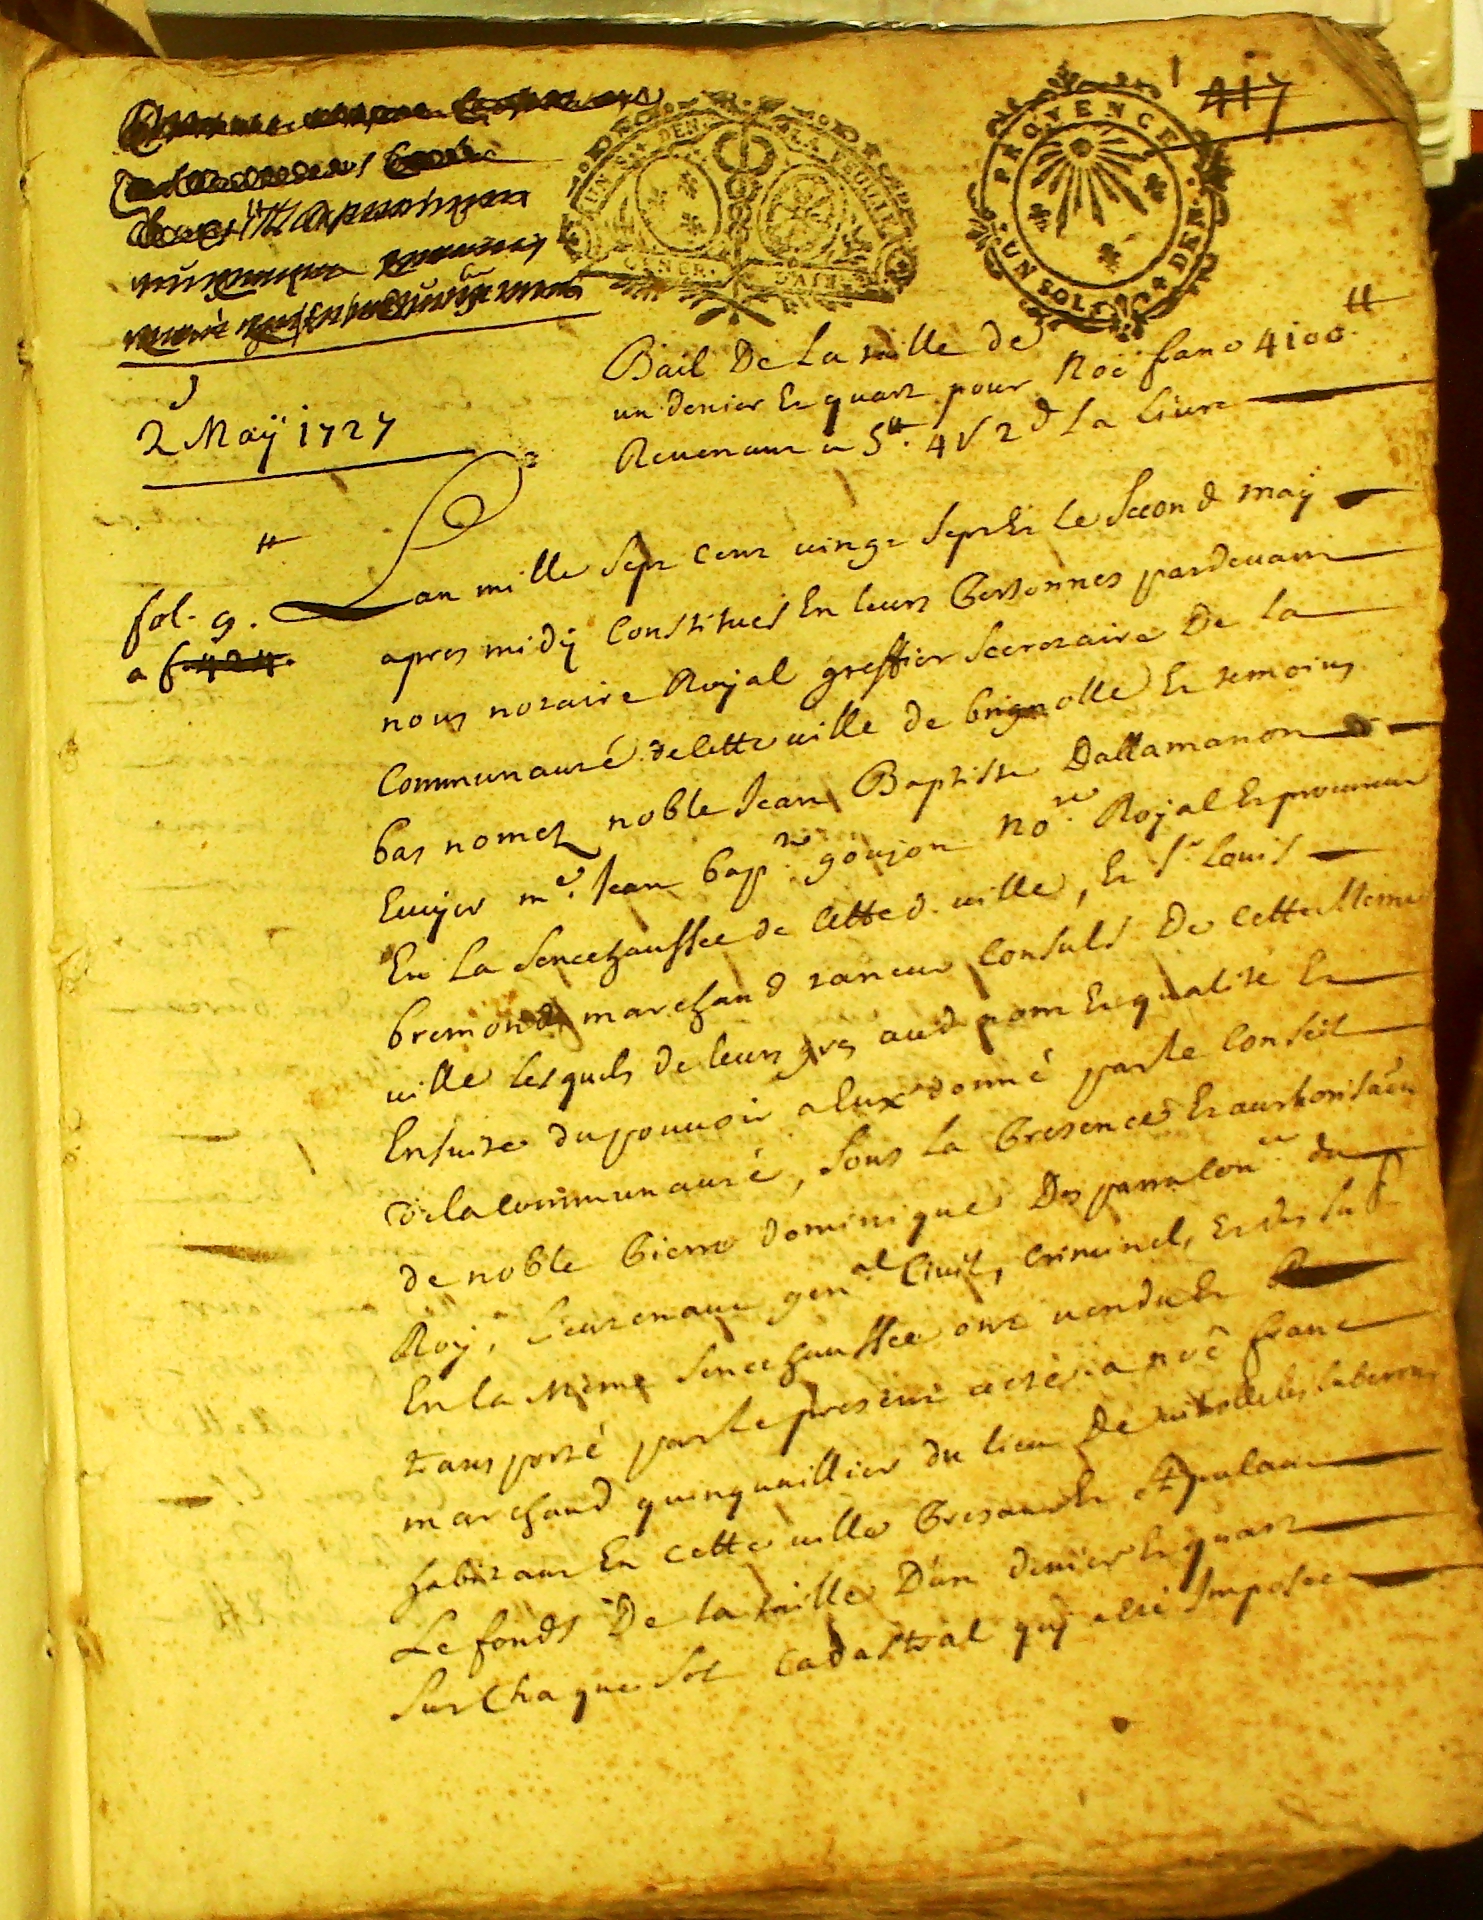 417
UN S. DEN. LA FEUILLE
GENER. D'AIX
PROVENCE
UN SOL DEN.
Bail De La taille de
un denier Et quart pour Noé franc 4100ᵗᵗ
Revenant a 5ᵗᵗ. 4 s 2 d La Livre
2 Maÿ 1727
fol. 9.
a f. 424.
Lan mille sept cent vingt sept Et le second maÿ
apres midÿ Constitués En leurs Personnes pardevant
nous notaire Royal greffier secretaire De la
Communauté de cette ville de brignolle Et temoins
bas nomez noble Jean Baptiste Dallamanon
Ecuÿer mᵉ. Jean bapᵗᵉ. goujon noʳᵉ. Royal Et procureur
En La Senechaussee de Cette d. ville, Et sʳ Louis
bremond marchand taneur Consuls De cette Meme
ville lesquels de leurs gres aud. nom Et qualité Et
Ensuite du pouvoir a Eux donné par le Conseil
de la communauté, sous la Presence Et authorisaon
de noble Pierre dominique Desparra Conᵉʳ du
Roÿ, Lieutenant genᵃˡ Civil, Criminel, Et des sub.
En la Meme Senechaussee ont vendu Et
transporté par le present acte a noé franc
marchand quinquaillier du lieu De
habitant En cette ville Present Et stipulant
Le fonds De la taille D'un denier Et quart
Sur Chaque sol cadastral quÿ a été Imposee